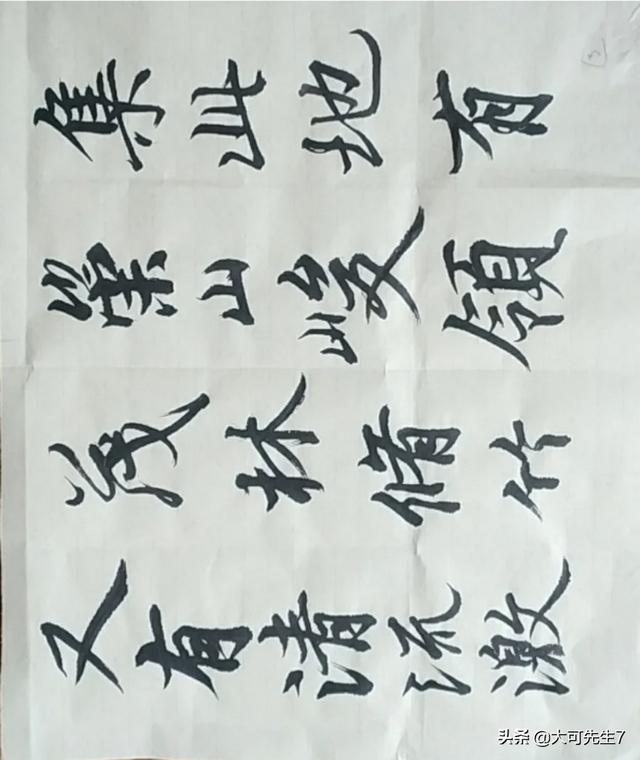 集此地有
崇山峻領
茂林脩竹
又有清流激
头条 @大可先生7